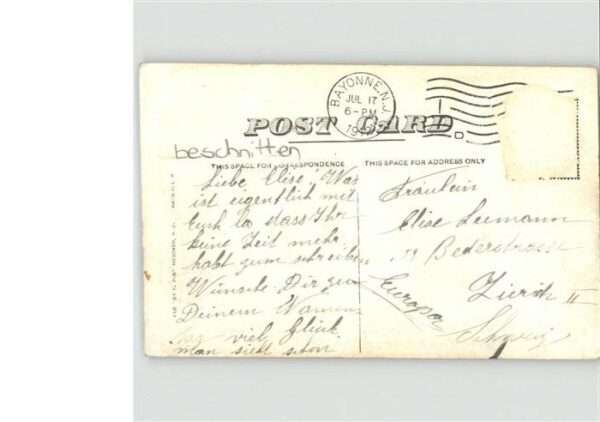 BAYONNE, N.J.
JUL 17
6-PM
POST CARD
D
beschnitten
THIS SPACE FOR CORRESPONDENCE
THIS SPACE FOR ADDRESS ONLY
Liebe Elise! Was
ist eigentlich mit
Euch los dass Ihr
keine Zeit mehr
habt zum schreiben
Wünsche Dir zu
Deinem Namens
tag viel Glück
man sieht schon
Fräulein
Elise Leemann
Bederstrasse
Zürich II
Europa
Schweiz